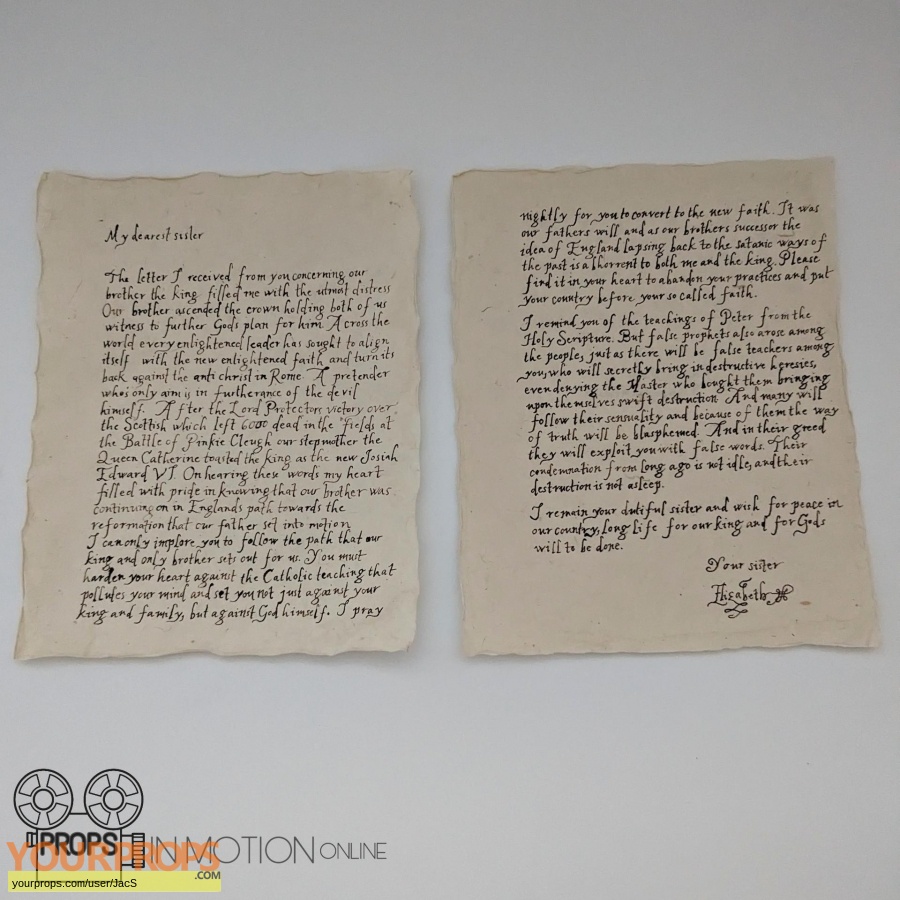 My dearest sister
The letter I received from you concerning our
brother the king filled me with the utmost distress
Our brother ascended the crown holding both of us
witness to further Gods plan for him Across the
world every enlightened leader has sought to align
itself with the new enlightened faith and turn its
back against the anti christ in Rome A pretender
who's only aim is in furtherance of the devil
himself. After the Lord Protectors victory over
the Scottish which left 6000 dead in the fields at
the Battle of Pinkie Cleugh our stepmother the
Queen Catherine toasted the king as the new Josiah
Edward VI. On hearing these words my heart
filled with pride in knowing that our brother was
continuing on in Englands path towards the
reformation that our father set into motion
I can only implore you to follow the path that our
king and only brother sets out for us. You must
harden your heart against the Catholic teaching that
pollutes your mind and set you not just against your
king and family, but against God himself. I pray
nightly for you to convert to the new faith. It was
our fathers will and as our brothers successor the
idea of England lapsing back to the satanic ways of
the past is abhorrent to both me and the king. Please
find it in your heart to abandon your practices and put
your country before your so called faith.
I remind you of the teachings of Peter from the
Holy Scripture. But false prophets also arose among
the people, just as there will be false teachers among
you, who will secretly bring in destructive heresies,
even denying the Master who bought them bringing
upon themselves swift destruction And many will
follow their sensuality and because of them the way
of truth will be blasphemed. And in their greed
they will exploit you with false words. Their
condemnation from long ago is not idle, and their
destruction is not asleep.
I remain your dutiful sister and wish for peace in
our country, long life for our king and for Gods
will to be done.
Your sister
Elizabeth
PROPS IN MOTION ONLINE
YOURPROPS
.COM
yourprops.com/user/JacS